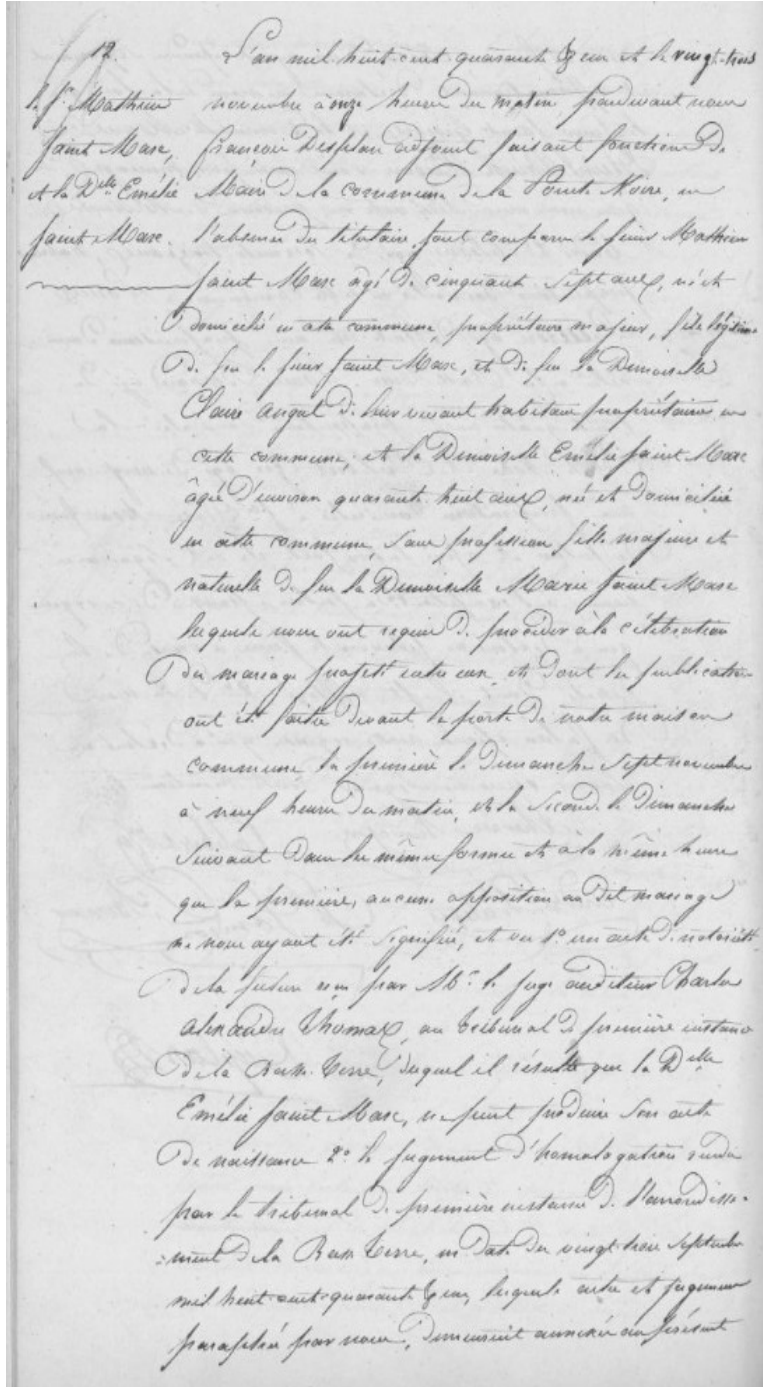 17.
le Sr Mathieu
Saint Marc,
et la Delle Emélie
Saint Marc.
L'an mil huit cent quarante et un et le vingt-trois
novembre à onze heures du matin, pardevant nous
françois Desplan adjoint faisant fonctions de
Maire de la commune de la Pointe Noire, en
l'absence du titulaire, sont comparus le sieur Mathieu
Saint Marc âgé de cinquante sept ans, né et
domicilié en cette commune, propriétaire majeur, fils légitime
de feu le sieur Saint Marc, et de feu la Demoiselle
Claire de leur vivant habitans propriétaires en
cette commune; et la Demoiselle Emélie Saint Marc
âgée d'environ quarante huit ans, née et domiciliée
en cette commune, sans profession fille majeure et
naturelle de feu la Demoiselle Marie Saint Marc
lesquels nous ont requis de procéder à la célébration
du mariage projeté entre eux, et dont les publications
ont été faites devant la porte de notre maison
commune, la première le dimanche sept novembre
à neuf heures du matin, et la seconde le dimanche
suivant dans les mêmes formes et à la même heure
que la première, aucune opposition au dit mariage
ne nous ayant été signifiée, et vu 1o un acte de notoriété
de la future reçu par Mr le juge auditeur Charles
alexandre Thomas, au tribunal de première instance
de la Basse-Terre, duquel il résulte que la Delle
Emélie Saint Marc, ne peut produire son acte
de naissance 2o le jugement d'homologation rendu
par le tribunal de première instance de l'arrondisse-
=ment de la Basse Terre, en date du vingt trois Septembre
mil huit cent quarante et un, lesquels acte et jugement
paraphés par nous, demeurent annexés au présent